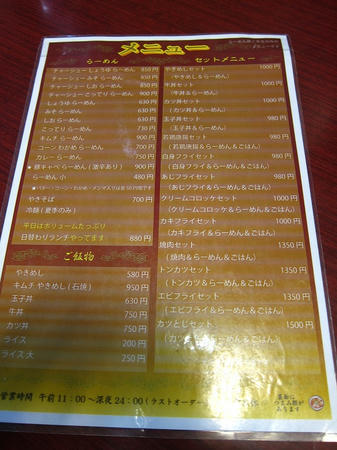 メニュー
らーめん
チャーシューしょうゆらーめん 850円
チャーシューみそらーめん 850円
チャーシューしおらーめん 850円
チャーシューこってりらーめん 950円
しょうゆらーめん 630円
みそらーめん 630円
しおらーめん 630円
こってりらーめん 730円
キムチらーめん 900円
コーンわかめらーめん 750円
カレーらーめん 750円
らーめん小 480円
やさそば 700円
冷麺(夏季のみ) 700円
平日はボリュームたっぷり
日替わりランチやってます 880円
ご飯物
やきめし 580円
キムチやきめし(石焼) 950円
玉子丼 630円
牛丼 750円
カツ丼 750円
ライス 200円
ライス大 250円
セットメニュー
やきめしセット 1000円
(やきめし&らーめん)
牛丼セット 1000円
(牛丼&らーめん)
カツ丼セット 1000円
(カツ丼&らーめん)
玉子丼セット 980円
(玉子丼&らーめん)
若鶏唐揚セット 980円
(若鶏唐揚&らーめん&ごはん)
白身フライセット 1000円
(白身フライ&らーめん&ごはん)
あじフライセット 1000円
(あじフライ&らーめん&ごはん)
クリームコロッケセット 1000円
(クリームコロッケ&らーめん&ごはん)
カキフライセット 1000円
(カキフライ&らーめん&ごはん)
焼肉セット 1350円
(焼肉&らーめん&ごはん)
トンカツセット 1350円
(トンカツ&らーめん&ごはん)
エビフライセット 1350円
(エビフライ&らーめん&ごはん)
カツとじセット 1500円
(カツとじ&らーめん&ごはん)
営業時間 午前11:00~深夜24:00(ラストオーダー